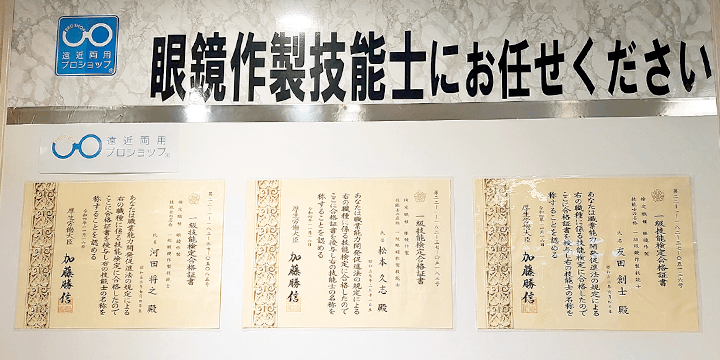 PRO SHOP
遠近両用
プロショップ®
眼鏡作製技能士にお任せください
遠近両用
プロショップ®
一級技能検定合格証書
検定職種 眼鏡作製
氏名 河田将之 殿
あなたは職業能力開発促進法の規定による
右の職種に係る技能検定に合格したので
ここに合格証書を授与し右の技能士の名称を
称することを認める
厚生労働大臣 加藤勝信
一級技能検定合格証書
検定職種 眼鏡作製
氏名 松本久志 殿
あなたは職業能力開発促進法の規定による
右の職種に係る技能検定に合格したので
ここに合格証書を授与し右の技能士の名称を
称することを認める
厚生労働大臣 加藤勝信
一級技能検定合格証書
検定職種 眼鏡作製
氏名 友田創士 殿
あなたは職業能力開発促進法の規定による
右の職種に係る技能検定に合格したので
ここに合格証書を授与し右の技能士の名称を
称することを認める
厚生労働大臣 加藤勝信